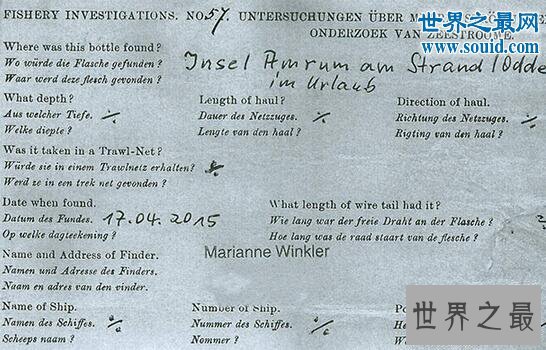 FISHERY INVESTIGATIONS. NO. 57. UNTERSUCHUNGEN ÜBER
ONDERZOEK VAN ZEESTROOME
搜弟网
www.souid.com
Where was this bottle found?
Wo würde die Flasche gefunden?
Waar werd deze flesch gevonden?
Insel Amrum am Strand /Odde
im Urlaub
What depth? Length of haul? Direction of haul.
Aus welcher Tiefe. Dauer des Netzzuges. Richtung des Netzzuges.
Welke diepte? Lengte van den haal? Rigting van den haal?
Was it taken in a Trawl-Net?
Würde sie in einem Trawlnetz erhalten?
Werd ze in een trek net gevonden?
Date when found. What length of wire tail had it?
Datum des Fundes. 17.04.2015 Wie lang war der freie Draht an der Flasche?
Op welke dagteekening? Hoe lang was de raad staart van de flesche?
Name and Address of Finder. Marianne Winkler
Namen und Adresse des Finders.
Naam en adres van den vinder.
Name of Ship. Number of Ship.
Namen des Schiffes. Nummer des Schiffes.
Scheeps naam? Nommer?
世界之最